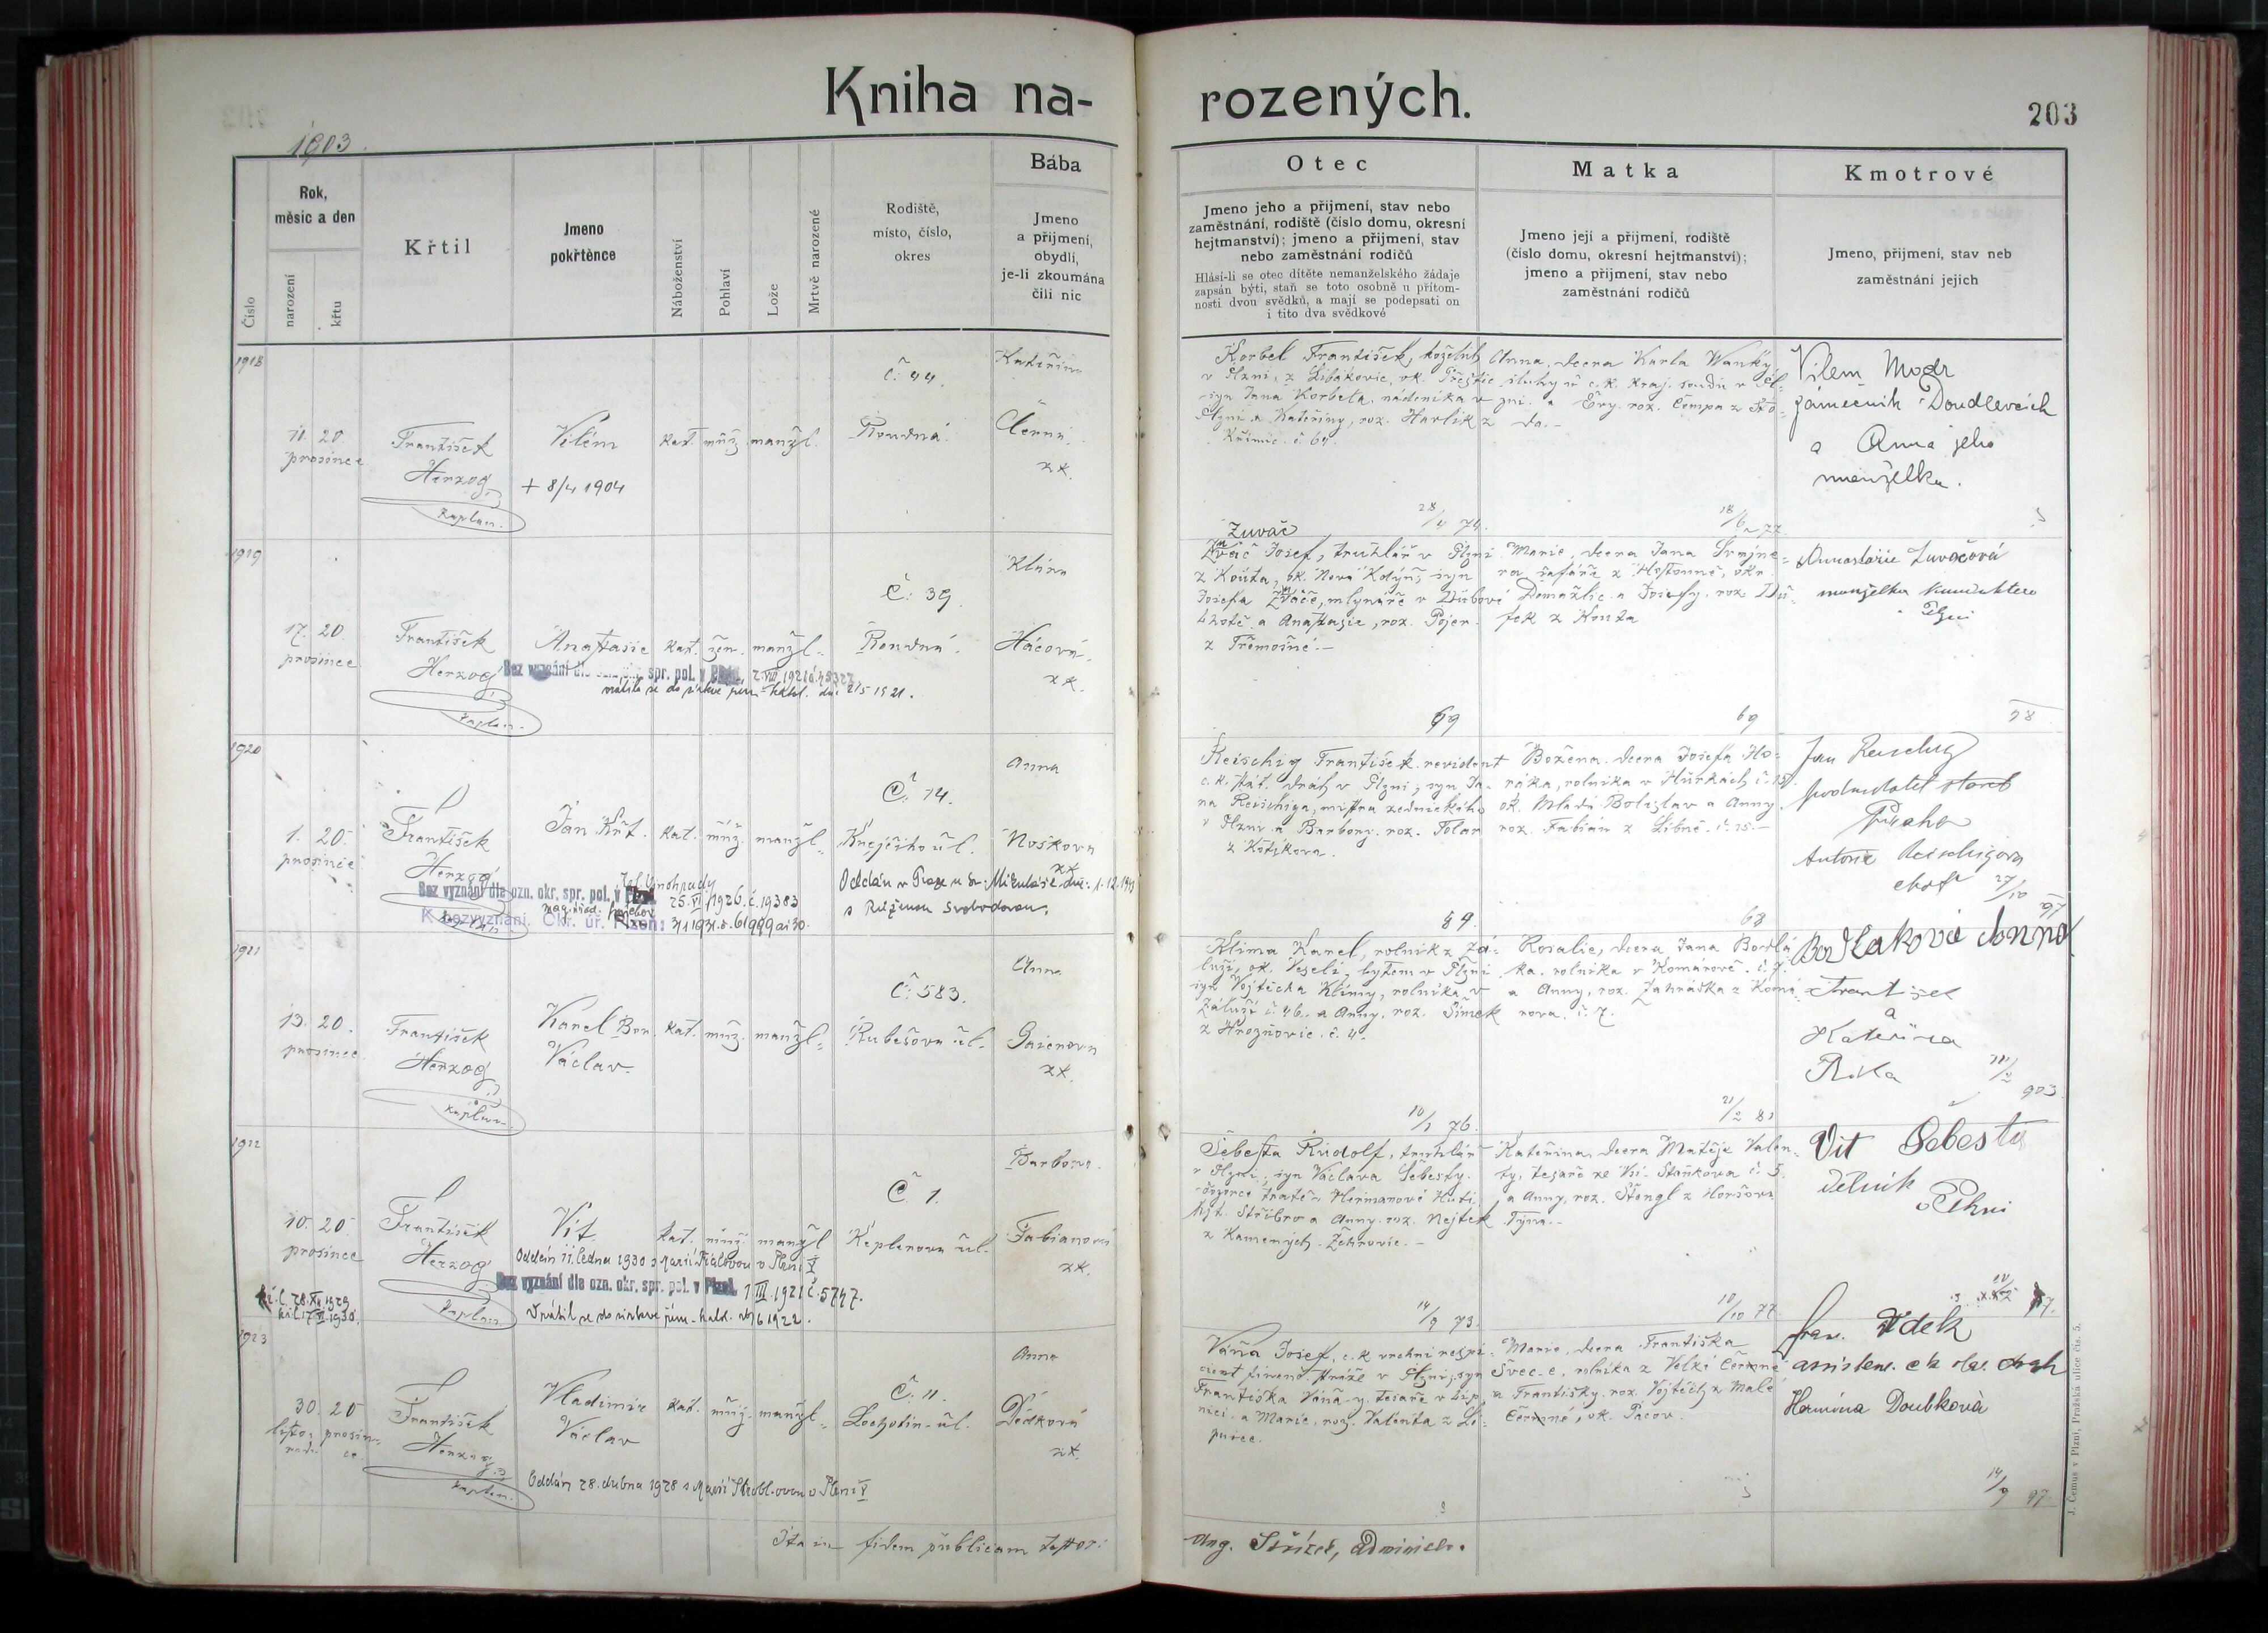 Kniha na-
rozených.
203
1903.
Číslo
Rok,
měsíc a den
narození
křtu
Křtil
Jmeno
pokřtěnce
Náboženství
Pohlaví
Lože
Mrtvě narozené
Rodiště,
místo, číslo,
okres
Bába
Jmeno
a přijmení,
obydlí,
je-li zkoumána
čili nic
Otec
Jmeno jeho a přijmení, stav nebo
zaměstnání, rodiště (číslo domu, okresní
hejtmanství); jmeno a přijmení, stav
nebo zaměstnání rodičů
Hlásí-li se otec dítěte nemanželského žádaje
zapsán býti, staň se toto osobně u přítom-
nosti dvou svědků, a mají se podepsati on
i tito dva svědkové
Matka
Jmeno její a přijmení, rodiště
(číslo domu, okresní hejtmanství);
jmeno a přijmení, stav nebo
zaměstnání rodičů
Kmotrové
Jmeno, přijmení, stav neb
zaměstnání jejich
1918
11. 20.
prosince
František
Herzog
kaplan.
Vilém
+ 8/4 1904
kat. muž. manžl.
Č: 44.
Roudná.
Kateřina
Černá.
zk.
Korbel František, koželuh
v Plzni, z Libákovic, ok. Přeštic
syn Jana Korbela, nádeníka v
Plzni a Kateřiny, roz. Harlik z
Křimic. č 64.
Anna, dcera Karla Wanky,
sluhy u c.k. kraj. soudu v Pl-
zni. a Evy roz. Čempa z Sto-
da.-
Vilem Modr
zámečník Doudlevcích
a Anna jeho
manželka.
28/4 74.
18/6 77
1919
17. 20.
prosince
František
Herzog
kaplan.
Anastasie
kat. žen. manžl.
Č: 39.
Roudná.
Klára
Hácová.
zk.
Bez vyznání dle spr. pol. v
vrátila se do církve řím.-katol. dne 2/5 1921.
Zuvač
Josef, truhlář v Plzni
z Kouta, ok. Nová Kdýně, syn
Josefa Zuvače, mlynáře v Dubové
Lhotě a Anastasie, roz. Pojer
z Třemošné.-
Marie, dcera Jana
ra šafáře z Hostouně, okr.
Domažlic a Josefy. roz. Du-
fek z Kouta
Anastázie Zuvačová
manželka
Plzni
69
69
98
1920
1. 20.
prosince
František
Herzog
Jan Křt.
kat. muž. manžl.
Č: 14.
Krejčího ul.
Anna
Noskova
zk.
Bez vyznání dle ozn. okr. spr. pol. v
25.VI 1926. č. 19383
K bezvyznání. Okr. úř. Plzeň:
Oddán v Praze u sv. Mikuláše dne 1.12.
s Růženou Svobodovou.
Reischig František, revident
c.k. stát. drah v Plzni, syn Ja-
na Reischiga, mistra zednického
v Plzni a Barbory. roz. Tolar
z Košíkova.
Božena, dcera Josefa Ho-
ráka, rolníka v Hůrkách č. 15.
ok. Mladá Boleslav a Anny.
roz. Fabián z Libně. č. 25.-
Jan Reischig
podnikatel staveb
Praha
Antonie Reischigova
choť 27/10 97
89.
68
1921
13. 20.
prosince
František
Herzog
kaplan.
Karel Bor.
Václav
kat. muž. manžl.
Č: 583.
Rubešova ul.
Anna
Gaierova
zk.
Klima Karel, rolník z Zá-
luží, ok. Veselí, bytem v Plzni
syn Vojtěcha Klimy, rolníka v
Záluží č. 46. a Anny, roz. Šimek
z Hrozňovic. č. 4.
Rosalie, dcera Jana Bodlá-
ka, rolníka v Komárově. č. 7.
a Anny, roz. Zahrádka z Komá-
rova. č. 7.
Bodlaková Anna
František
a
Kateřina
903
10/1 76.
21/2 81
1922
10. 20.
prosince
František
Herzog
kaplan.
Vít.
kat. muž. manžl
Č: 1.
Keplerova ul.
Barbora.
Fabianová
zk.
Oddán 11. ledna 1930 s Marií Fialovou v Plzni V
Bez vyznání dle ozn. okr. spr. pol. v Plzni. 1 III. 1921 č. 5747.
Vrátil se do církve řím.-katol. 1922.
Šebesta Rudolf, truhlář
v Plzni, syn Václava Šebesty.
dozorce tratě v Heřmanově Huti,
hjt. Stříbro a Anny. roz. Nejtek
z Kamených Žehrovic.-
Kateřina, dcera Matěje Valen-
ty, tesaře ze Vsi. Staňkova č. 5.
a Anny, roz. Štengl z Horšova
Týna.-
Vít Šebesta
dělník
v Plzni
14/9 73.
10/10 77
1923
30. 20.
listo- prosin-
padu ce
František
Herzog
kaplan.
Vladimir
Václav
kat. muž. manžl.
Č: 11.
Lochotín. ul.
Anna
Dědková
zk.
Oddán 28. dubna 1928 s Marií Stroblovou v Plzni V
Váňa Josef, c.k. vrchní respi-
cient finanč. stráže v Plzni, syn
Františka Váňa-y, tesaře v Lip-
nici. a Marie, roz. Valenta z Li-
pnice.
Marie, dcera Františka
Švec-e, rolníka z Velké Černé
a Františky. roz. Vojtěch z Malé
Černé, ok. Pacov.
Fran. Vdek
assistent. c k stat. drah
Hermína Doubková
14/9 97
Ita in fidem publicam
Administr.
J. Čemus v Plzni, Pražská ulice čís. 5.